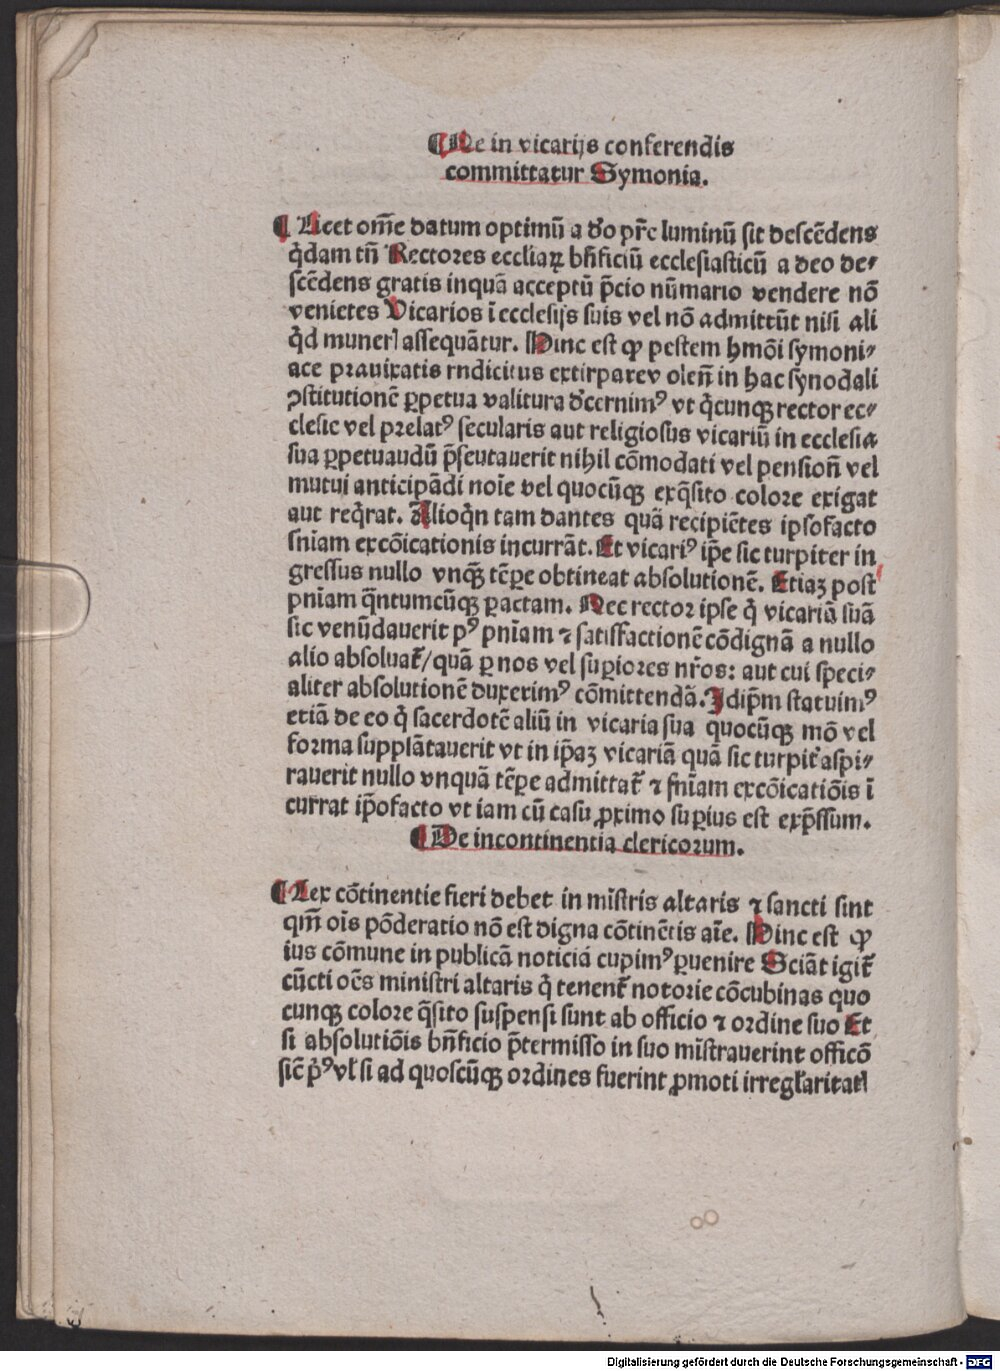 ¶ Ne in vicarijs conferendis
committatur Symonia.
¶ Licet om̄e datum optimū a dō pr̄e luminū sit descēdens
q̇dam tn̄ Rectores eccliaꝝ bn̄ficiū ecclesiasticū a deo de⸗
scēdens gratis inquā acceptū p̄cio nūmario vendere nō
venietes Vicarios ī ecclesijs suis vel nō admittūt nisi ali
q̇d munerꝭ assequātur. Hinc est ꝙ pestem hmōi symoni⸗
ace prauitatis rndicitus extirparev olen̄ in hac synodali
ꝯstitutionē ꝑpetua valitura dꝰcernimꝰ vt q̇cunqꝫ rector ec⸗
clesie vel prelatꝰ secularis aut religiosus vicariū in ecclesia
sua ꝑpetuaudū p̄seutauerit nihil cōmodati vel pension̄ vel
mutui anticipādi noīe vel quocūqꝫ exq̄sito colore exigat
aut req̇rat. Alioq̇n tam dantes quā recipiētes ipsofacto
sniam excōicationis incurrāt. Et vicariꝰ ip̄e sic turpiter in
gressus nullo vnqꝫ tēꝑe obtineat absolutionē. Etiaꝫ post
pn̄iam q̄ntumcūqꝫ ꝑactam. Nec rector ipse q̇ vicariā suā
sic venūdauerit pꝰ pn̄iam ⁊ satisfactionē cōdignā a nullo
alio absoluat̄/ quā ꝑ nos vel suꝑiores nr̄os: aut cui speci⸗
aliter absolutionē duxerimꝰ cōmittendā. Idip̄m statuimꝰ
etiā de eo q̇ sacerdotē aliū in vicaria sua quocūqꝫ mō vel
forma supplātauerit vt in ip̄aꝫ vicariā quā sic turpit̄ aspi⸗
rauerit nullo vnquā tēꝑe admittat̄ ⁊ sn̄iam excōicatiōis ī
currat ip̄ofacto vt iam cū casu ꝓximo suꝑius est exp̄ssum.
¶ De incontinentia clericorum.
¶ Lex cōtinentie fieri debet in mīstris altaris ⁊ sancti sint
qm̄ oīs pōderatio nō est digna cōtinētis aīe. Hinc est ꝙ
ius cōmune in publicā noticiā cupimꝰ ꝑuenire Sciāt igit̄
cūcti oēs ministri altaris q̇ tenent̄ notorie cōcubinas quo
cunqꝫ colore q̄sito suspensi sunt ab officio ⁊ ordine suo Et
si absolutiōis bn̄ficio p̄termisso in suo mīstrauerint officō
sic̄ pꝰ vl̄ si ad quoscūqꝫ ordines fuerint ꝓmoti irregl̄aritatꝭ
Digitalisierung gefördert durch die Deutsche Forschungsgemeinschaft - DFG